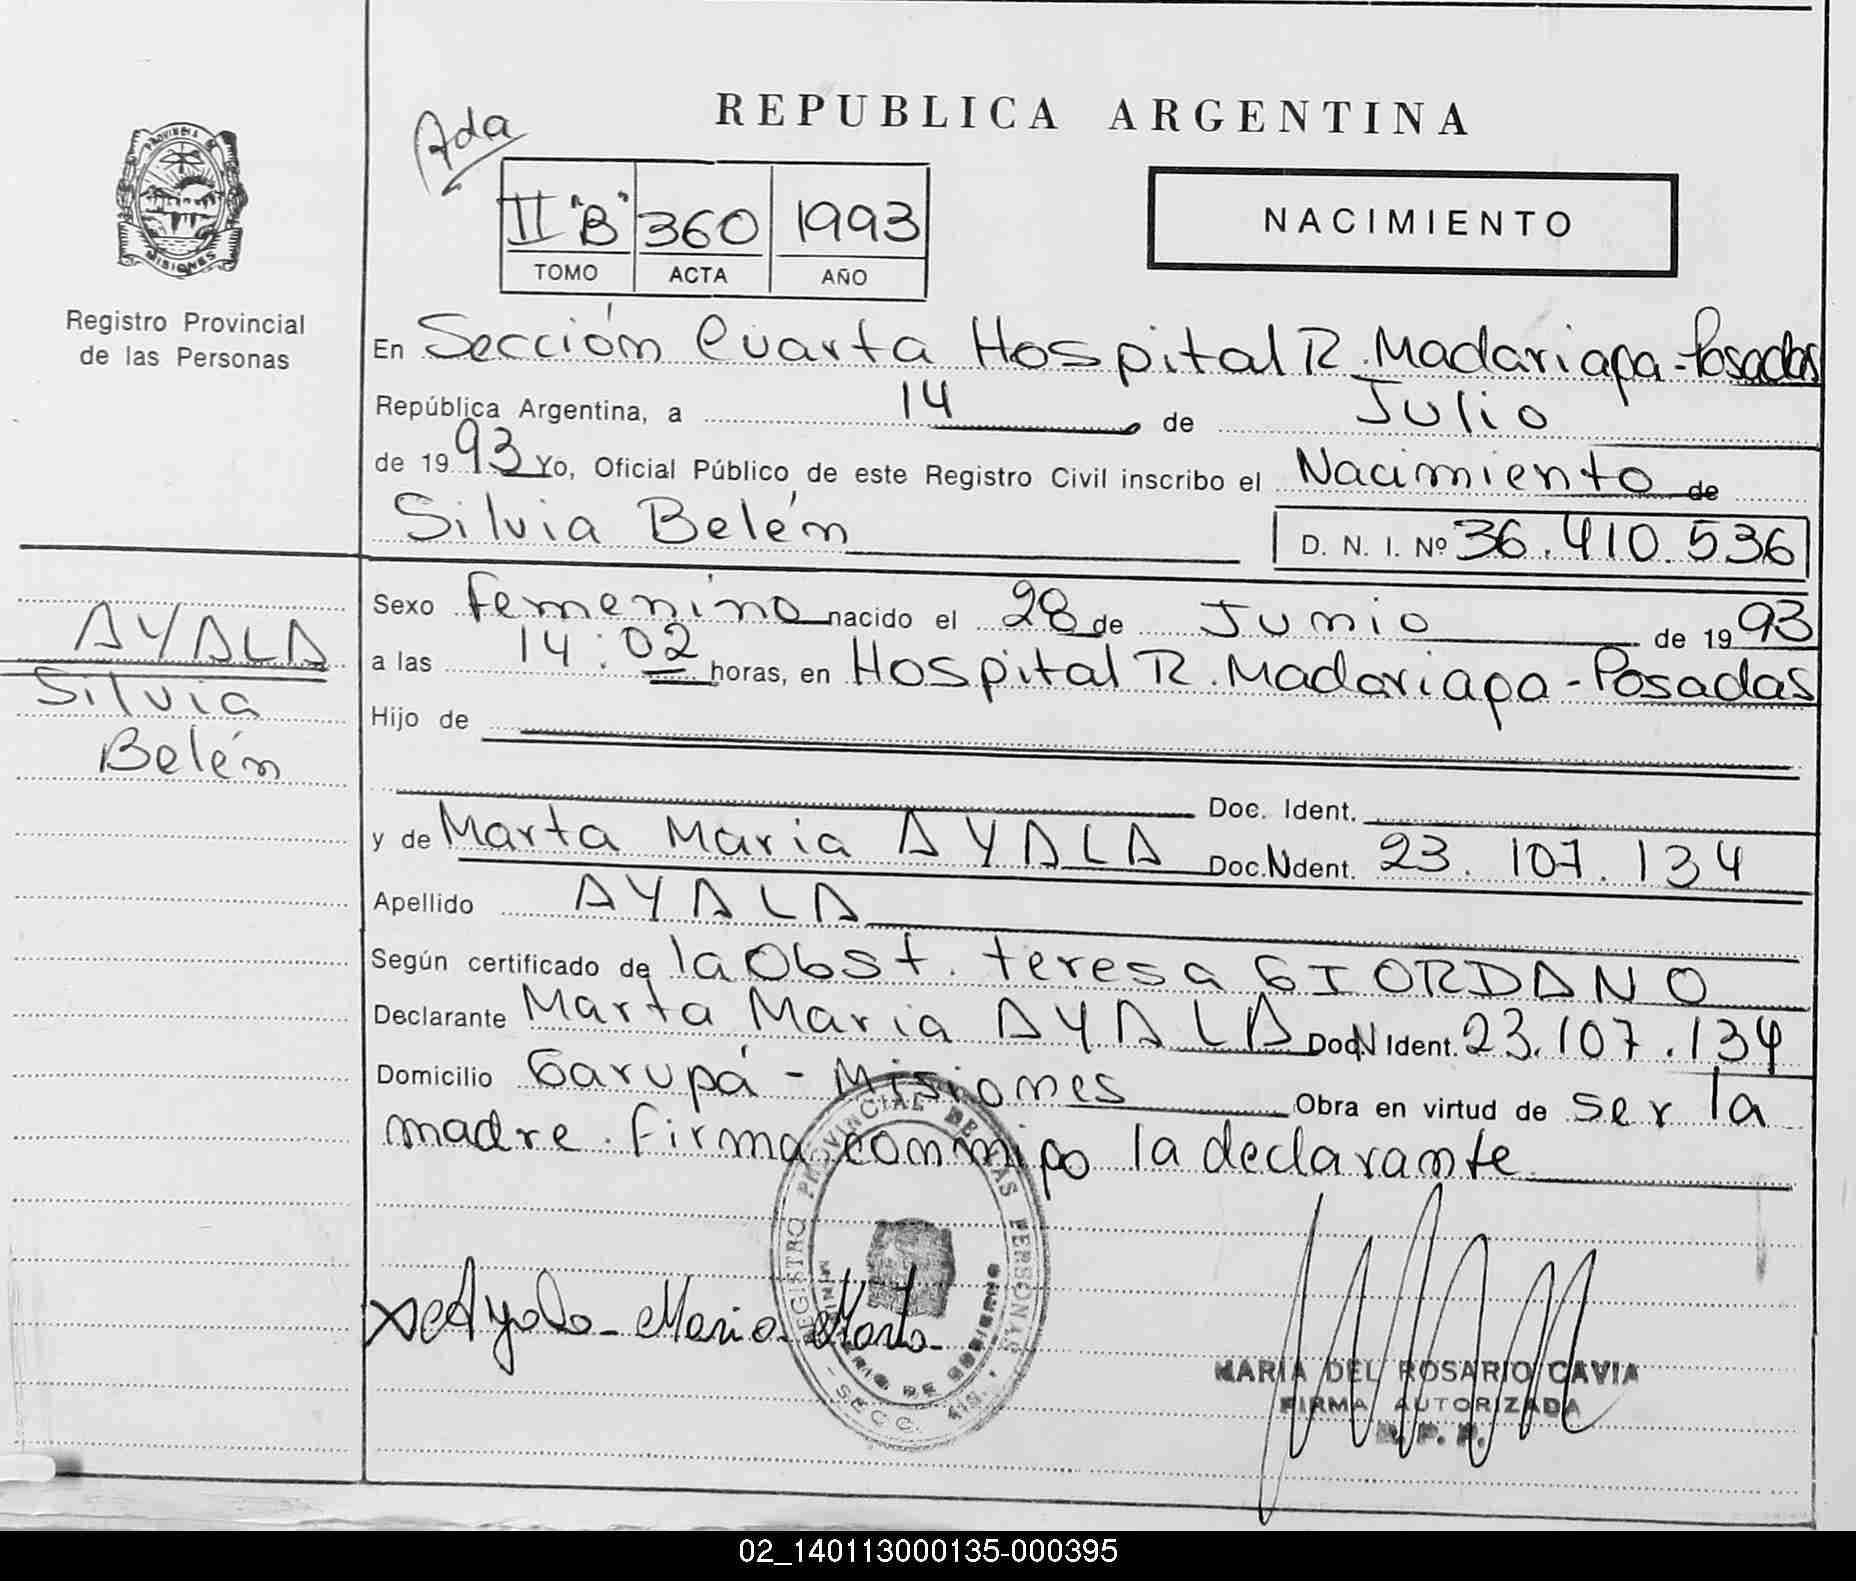 REPUBLICA ARGENTINA
Ada
II "B" 360 1993
TOMO ACTA AÑO
NACIMIENTO
PROVINCIA DE
MISIONES
Registro Provincial
de las Personas
En Sección Cuarta Hospital R. Madariaga - Posadas
República Argentina, a 14 de Julio
de 1993 Yo, Oficial Público de este Registro Civil inscribo el Nacimiento de
Silvia Belén D. N. I. Nº 36.410.536
AYALA
Silvia
Belén
Sexo femenino nacido el 28 de Junio de 1993
a las 14:02 horas, en Hospital R. Madariaga - Posadas
Hijo de
Doc. Ident.
y de Marta Maria AYALA Doc.Ndent. 23.107.134
Apellido AYALA
Según certificado de la Obst. teresa GIORDANO
Declarante Marta Maria AYALA Doc.N Ident. 23.107.134
Domicilio Garupá - Misiones Obra en virtud de ser la
madre. firma conmigo la declarante
REGISTRO PROVINCIAL DE LAS PERSONAS
MINISTERIO DE GOBIERNO
SECC.
x Ayala Maria Marta
MARIA DEL ROSARIO CAVIA
FIRMA AUTORIZADA
R. P. P.
02_140113000135-000395